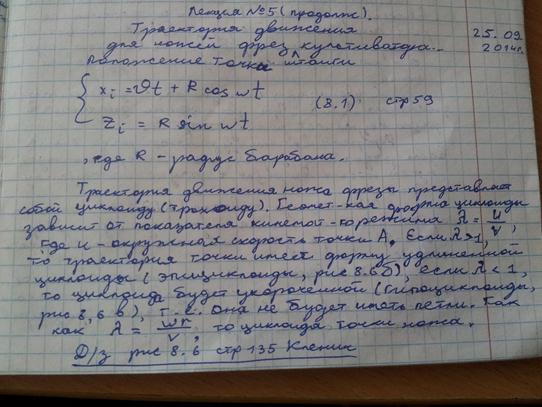 Лекция №5 (продолж).
Траектория движения 25.09
для ножей фрез культиватора. 2014г.
Положение точки штанги
xᵢ = ϑt + R cos ωt
(8.1) стр 59
zᵢ = R sin ωt
, где R - радиус барабана.
Траектория движения ножа фрезы представляет
собой циклоиду (трохоиду). Геомет-кая форма циклоиды
зависит от показателя кинемат-го режима λ = u/v,
где u - окружная скорость точки А. Если λ>1,
то траектория точки имеет форму удлиненной
циклоиды (эпициклоиды, рис 8.6 б), если λ < 1,
то циклоида будет укороченной (гипоциклоиды,
рис 8,6 в), т.е. она не будет иметь петли. Так
как λ = ωr/v, то циклоида точки ножа.
Д/з рис 8.6 стр 135 Кленин